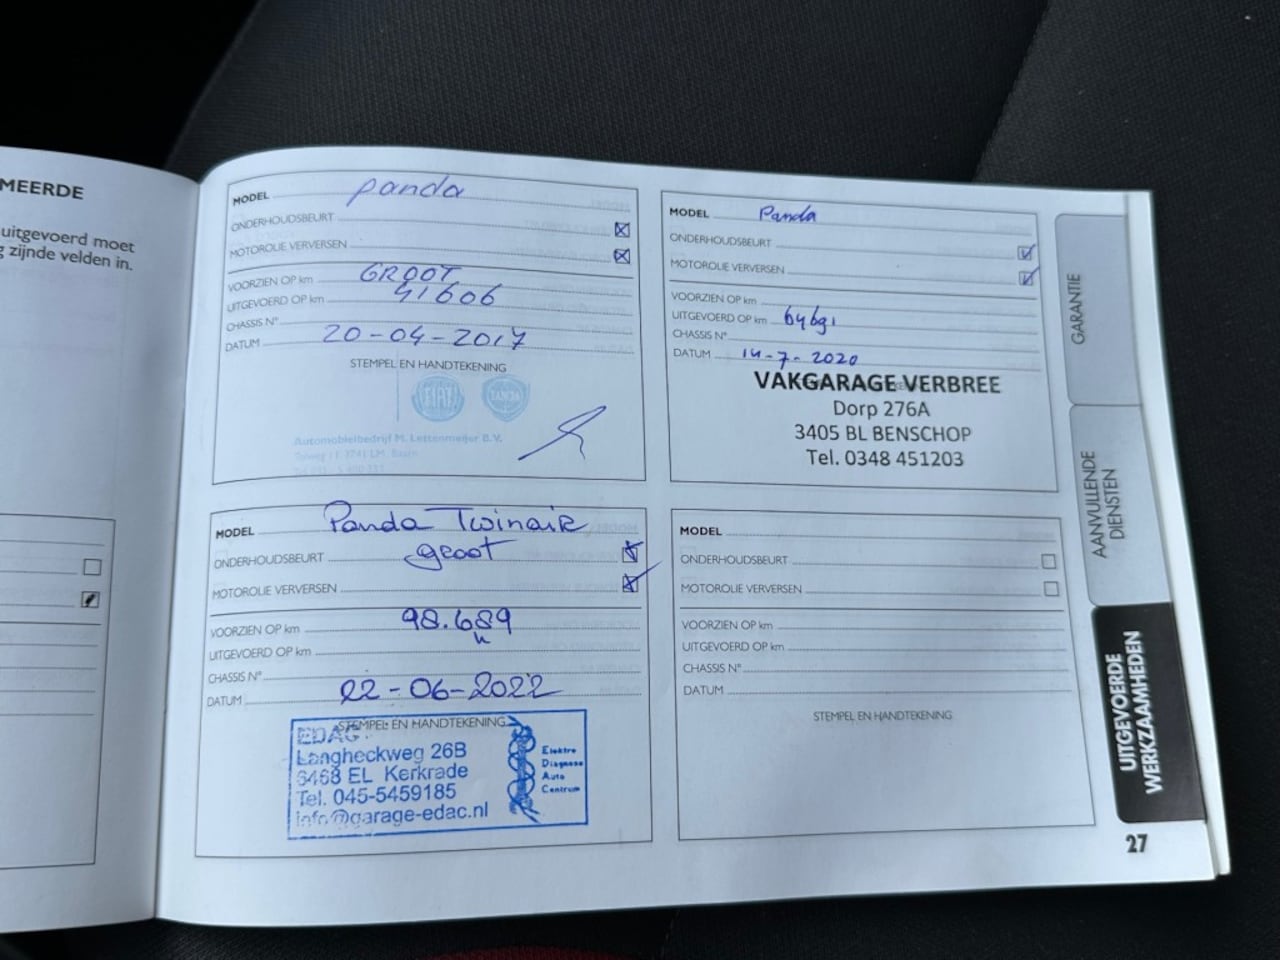 MEERDE
uitgevoerd moet
zijnde velden in.
MODEL panda
ONDERHOUDSBEURT
MOTOROLIE VERVERSEN
GROOT
VOORZIEN OP km
UITGEVOERD OP km 41606
CHASSIS N°
DATUM 20-04-2017
STEMPEL EN HANDTEKENING
FIAT LANCIA
Automobielbedrijf M. Lettenmeijer B.V.
MODEL Panda
ONDERHOUDSBEURT
MOTOROLIE VERVERSEN
VOORZIEN OP km
UITGEVOERD OP km 64691
CHASSIS N°
DATUM 14-7-2020
VAKGARAGE VERBREE
Dorp 276A
3405 BL BENSCHOP
Tel. 0348 451203
MODEL Panda Twinair
groot
ONDERHOUDSBEURT
MOTOROLIE VERVERSEN
VOORZIEN OP km 98.689
UITGEVOERD OP km
CHASSIS N°
DATUM 22-06-2022
STEMPEL EN HANDTEKENING
EDAC
Langheckweg 26B
6468 EL Kerkrade
Tel. 045-5459185
info@garage-edac.nl
Elektro
Diagnose
Auto
Centrum
MODEL
ONDERHOUDSBEURT
MOTOROLIE VERVERSEN
VOORZIEN OP km
UITGEVOERD OP km
CHASSIS N°
DATUM
STEMPEL EN HANDTEKENING
GARANTIE
AANVULLENDE
DIENSTEN
UITGEVOERDE
WERKZAAMHEDEN
27